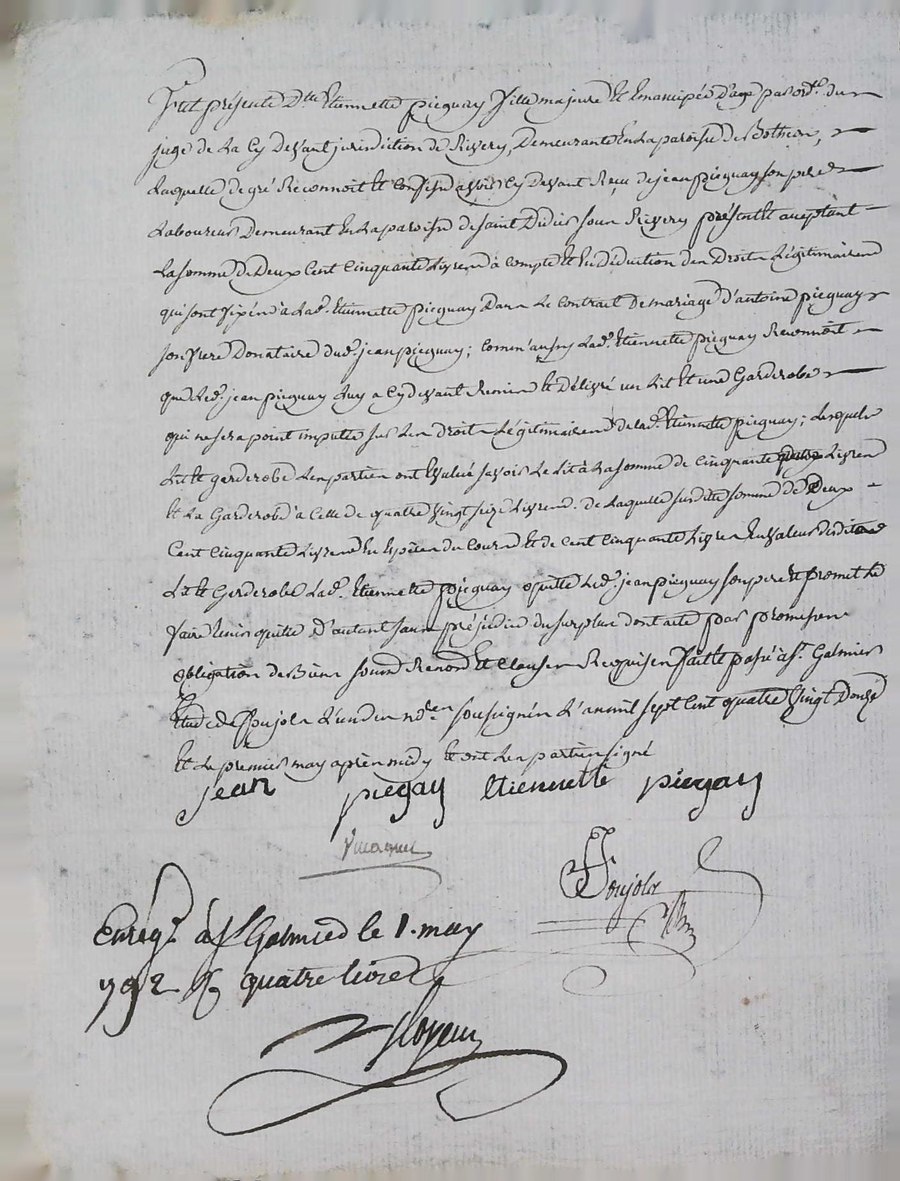 Fut présente Dlle Etiennette picguay fille majeure et Emancipée D'age par ordce du
juge de La Cy Devant jurisdiction de Rivery, Demeurante En La paroisse de
Laquelle de gré Reconnoit et Confesse avoir Cy Devant Recu de jean picguay son pere
Laboureur Demeurant En La paroisse de saint Didier sous Rivery présent et acceptant
La somme de Deux Cent Cinquante Livres à Compte et En Déduction des Droits Légitimaires
qui sont fixés à Lad. Etiennette picguay Dans Le Contrat De mariage d'antoine picguay
son frere Donataire dud. jean picguay; Comm'aussy Lad. Etiennette picguay Reconnoit
que Led. jean picguay Luy a Cy devant Remis et Délivré un Lit et une Garderobe
qui ne sera point imputée sur Les droits Légitimaires de lad. Etiennette picguay; Lesquels
Lit et garderobe Les parties ont Evalué savoir Le Lit à La somme de Cinquante quatre Livres
et La Garderobe à Celle de quatre vingt seize Livres. de Laquelle susdite somme de Deux
Cent Cinquante Livres En Espèces du Cours et de Cent Cinquante Livres En valeur desdits
Lit et Garderobe Lad. Etiennette picguay quitte Led. jean picguay son pere et promet Le
faire tenir quitte D'autant sans préjudice du surplus dont acte par promesses
obligation de Biens soumis Renonc et Clauses Requises fait et passé à St. Galmier
Etude de Poujols L'un des nores soussignés L'an mil sept Cent quatre vingt Douze
et Le premier may après midy et ont Les parties signé
jean piegay Etiennette piegay
Poujols
Enregt. à St Galmier le 1. may
1792 R quatre livres